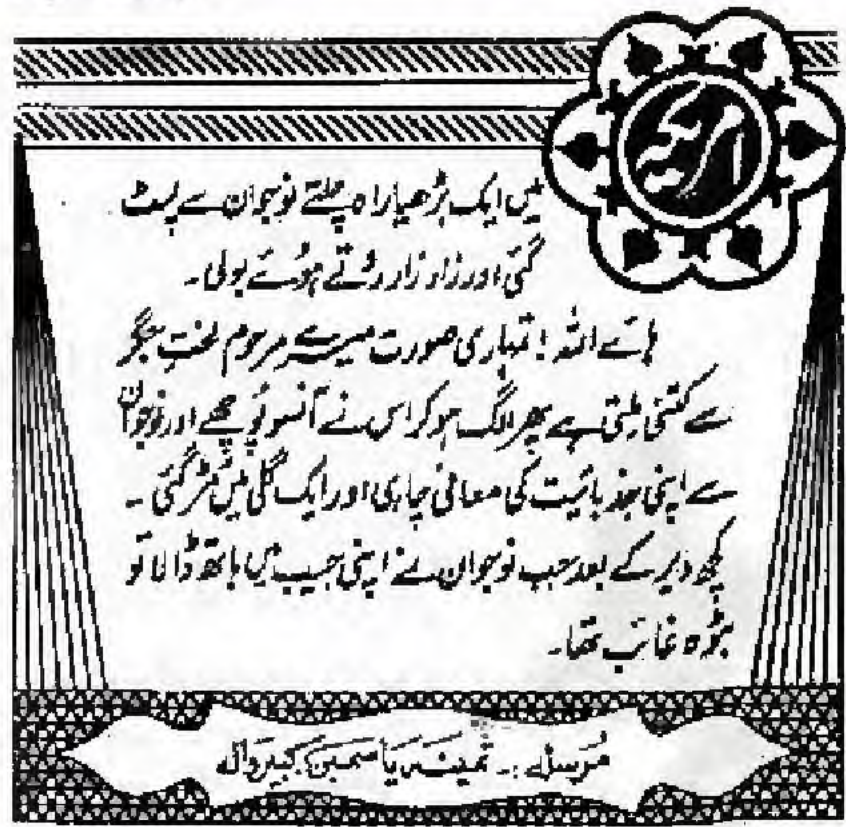 امریکہ
میں ایک بڑھیا راہ چلتے نوجوان سے لپٹ
گئی اور زار زار روتے ہوئے بولی۔
ہائے اللہ! تمہاری صورت میرے مرحوم لختِ جگر
سے کتنی ملتی ہے پھر الگ ہو کر اس نے آنسو پونچھے اور نوجوان
سے اپنی جذباتیت کی معافی چاہی اور ایک گلی میں مڑ گئی۔
کچھ دیر کے بعد جب نوجوان نے اپنی جیب میں ہاتھ ڈالا تو
بٹوہ غائب تھا۔
مرسلہ:۔ ثمینہ یاسمین، کبیروالہ